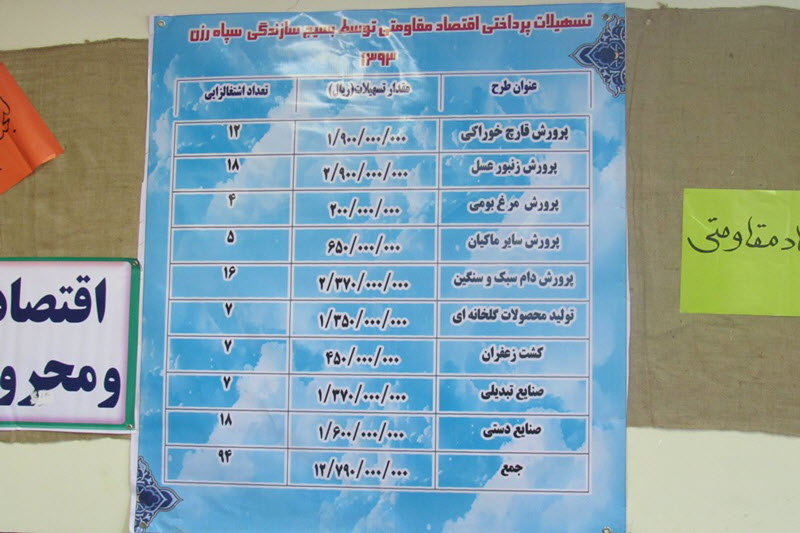 تسهیلات پرداختی اقتصاد مقاومتی توسط بسیج سازندگی سپاه رزن
۱۳۹۳
عنوان طرح مقدار تسهیلات(ریال) تعداد اشتغالزایی
پرورش قارچ خوراکی ۱/۹۰۰/۰۰۰/۰۰۰ ۱۲
پرورش زنبور عسل ۲/۹۰۰/۰۰۰/۰۰۰ ۱۸
پرورش مرغ بومی ۲۰۰/۰۰۰/۰۰۰ ۴
پرورش سایر ماکیان ۶۵۰/۰۰۰/۰۰۰ ۵
پرورش دام سبک و سنگین ۲/۳۷۰/۰۰۰/۰۰۰ ۱۶
تولید محصولات گلخانه ای ۱/۳۵۰/۰۰۰/۰۰۰ ۷
کشت زعفران ۴۵۰/۰۰۰/۰۰۰ ۷
صنایع تبدیلی ۱/۳۷۰/۰۰۰/۰۰۰ ۷
صنایع دستی ۱/۶۰۰/۰۰۰/۰۰۰ ۱۸
جمع ۱۲/۷۹۰/۰۰۰/۰۰۰ ۹۴
اد مقاومتی
اقتصاد
و محرو